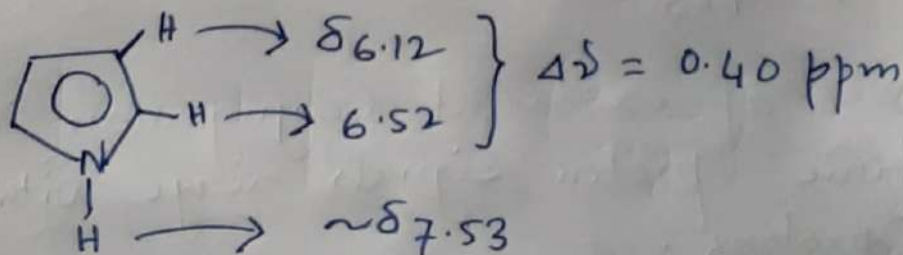 H → δ 6.12
H → 6.52 } Δδ = 0.40 ppm
N
H → ~δ 7.53